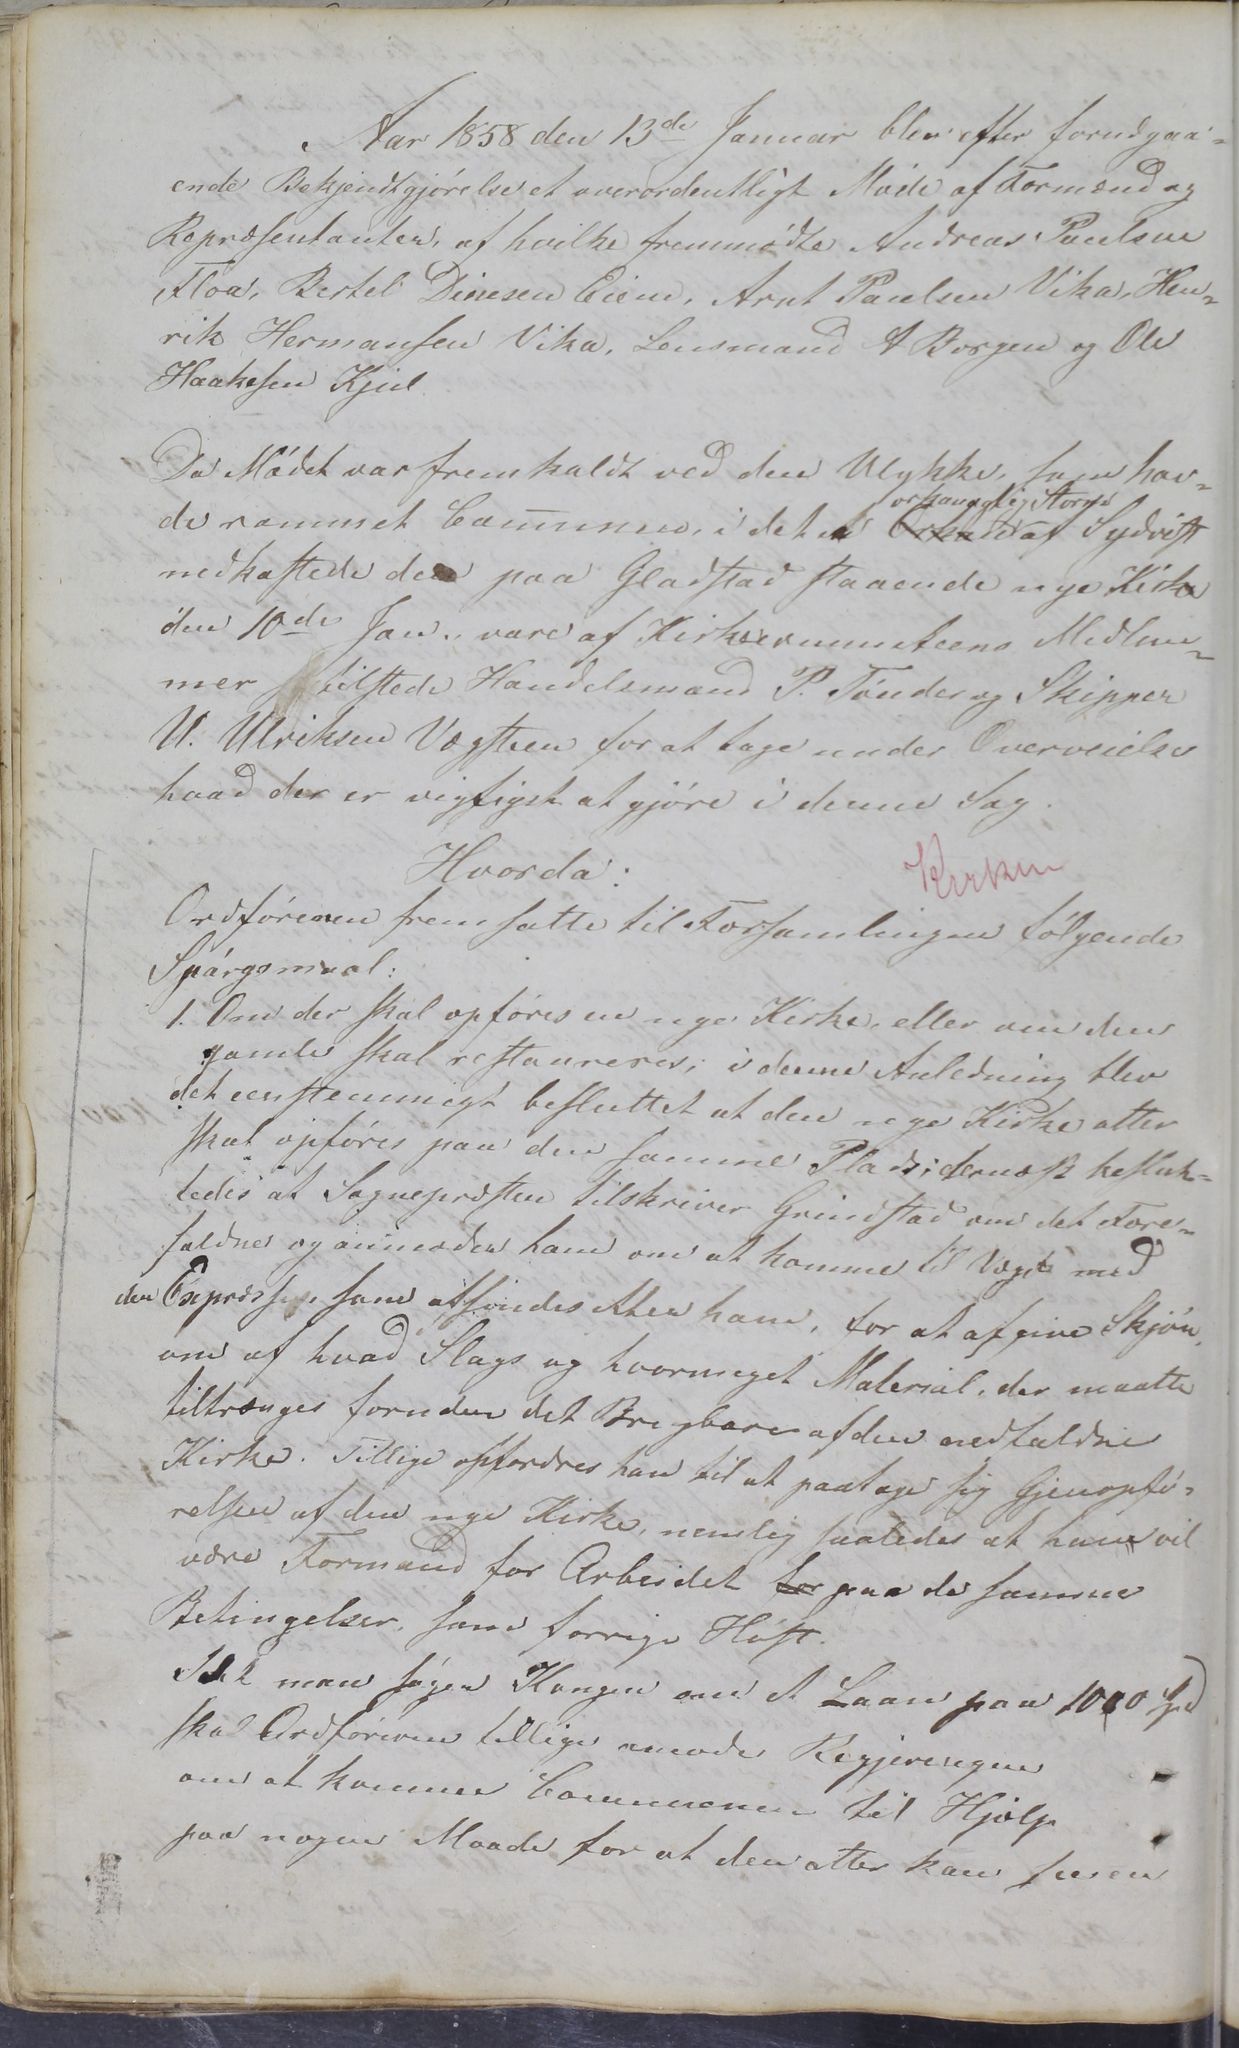 Aar 1858 den 13de Januar blev efter forudgaa-
ende Bekjendtgjørelse et overordentligt Møde af Formænd og
Repræsentanter, af hvilke fremmødte Andreas Paulsen
Floa, Bertel Dinesen Eiem, Arnt Paulsen Vika, Hen-
rik Hermansen Vika, Lensmand A Borgen og Ole
Haakesen Kjul
Da Mødet var fremkaldt ved den Ulykke, som hav-
orkanagtig Storm
de rammet Communen, i det en Orkan af Sydvest
nedkastede den paa Gladstad staaende nye Kirke
den 10de Jan., vare af Kirkecommiteens Medlem-
mer tilstede Handelsmand P. Tønder og Skipper
U. Ulriksen Vægsteen for at tage under Overveielse
hvad der er vigtigst at gjøre i denne Sag.
Hvorda:
Kirken
Ordføreren fremsatte til Forsamlingen følgende
Spørgsmaal:
1. Om der skal opføres en nye Kirke, eller om den
gamle skal restaureres; i denne Anledning blev
det eenstemmigt besluttet at den nye Kirke atter
skal opføres paa den samme Plads; dernæst beslut-
tedes at Sognepræsten tilskriver Grindstad om det Fore-
faldne og anmoder ham om at komme til Vega med
den Expresse, som afsendes etter ham, for at afgive Skjøn,
om af hvad Slags og hvormeget Material, der maatte
tiltrænges foruden det Brugbare af den nedfaldne
Kirke. Tillige opfordres han til at paatage sig Gjenopfø-
relsen af den nye Kirke, nemlig saaledes at han vil
være Formand for Arbeidet for paa de samme
Betingelser, som forrige Høst.
man søger Kongen om et Laan paa 1000 Spd
skal Ordføreren tillige anmode Regjeringen
om at komme Communen til Hjælp
paa nogen Maade for at den atter kan